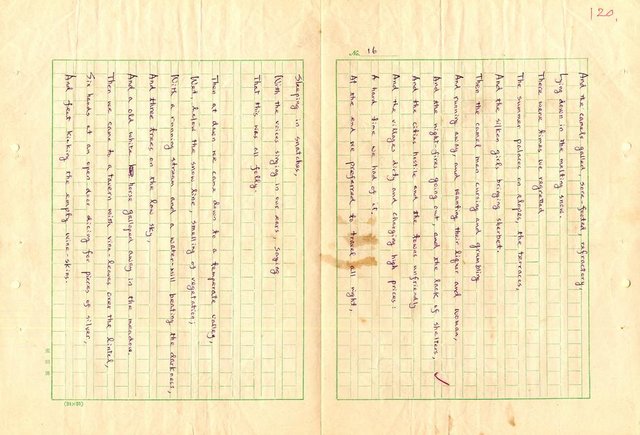 120.
No. 16
And the camels galled, sore-footed, refractory,
Lying down in the melting snow.
There were times we regretted
The summer palaces on slopes, the terraces,
And the silken girls bringing sherbet.
Then the camel men cursing and grumbling
And running away, and wanting their liquor and women,
And the night-fires going out, and the lack of shelters,
And the cities hostile and the towns unfriendly
And the villages dirty and charging high prices:
A hard time we had of it.
At the end we preferred to travel all night,
Sleeping in snatches,
With the voices singing in our ears, saying
That this was all folly.
Then at dawn we came down to a temperate valley,
Wet, below the snow line, smelling of vegetation;
With a running stream and a water-mill beating the darkness,
And three trees on the low sky,
And a old white horse galloped away in the meadow.
Then we came to a tavern with vine-leaves over the lintel,
Six hands at an open door dicing for pieces of silver,
And feet kicking the empty wine-skins.